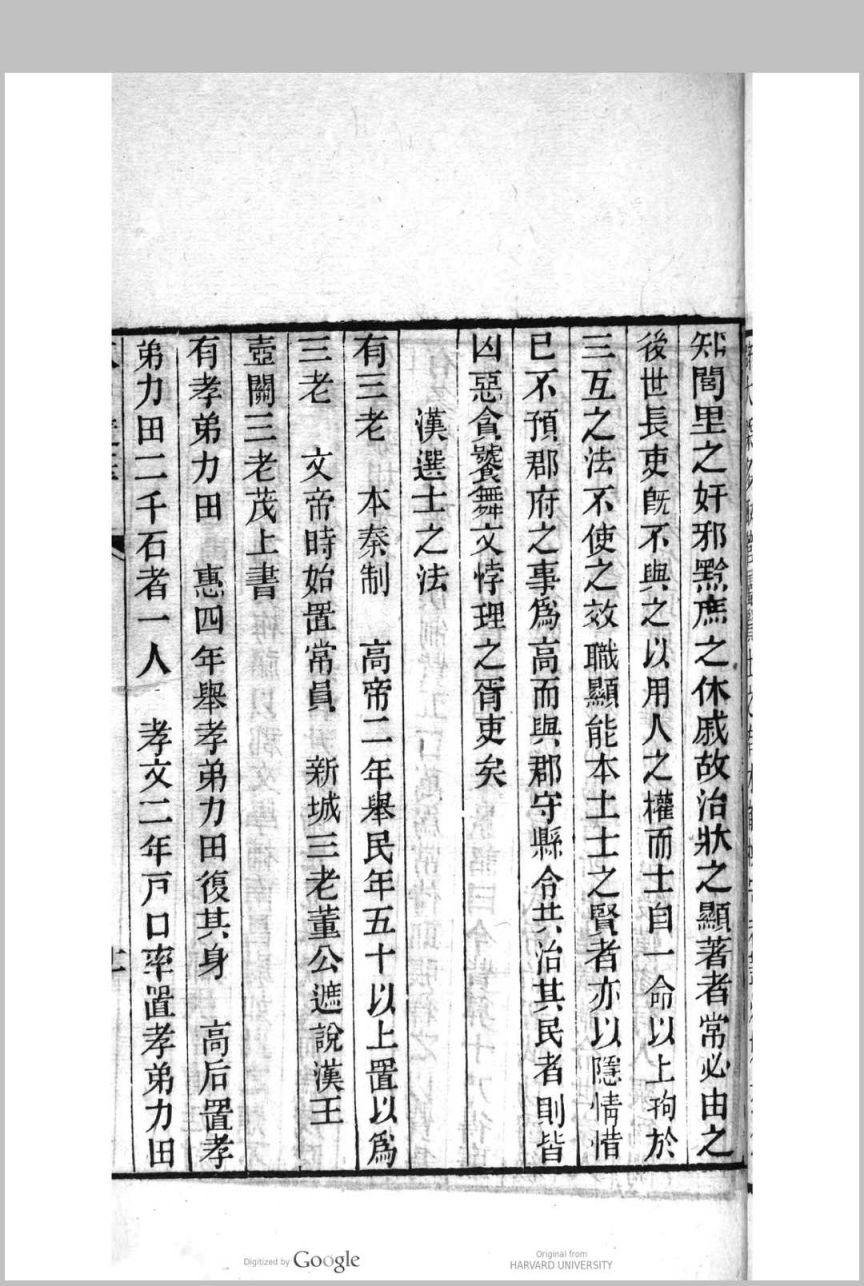 知閭里之奸邪黙庶之休戚故治狀之顯著者常必由之
後世長吏旣不與之以用人之權而士自一命以上拘於
三互之法不使之效職顯能本土士之賢者亦以隱情惜
已不預郡府之事爲高而與郡守縣令共治其民者則皆
凶惡貪饕舞文悖理之胥吏矣
漢選士之法
有三老　本秦制　高帝二年舉民年五十以上置以爲
三老　文帝時始置常員　新城三老董公遮說漢王
壺關三老茂上書
有孝弟力田　惠四年舉孝弟力田復其身　高后置孝
弟力田二千石者一人　孝文二年戸口率置孝弟力田
Digitized by Google
Original from
HARVARD UNIVERSITY